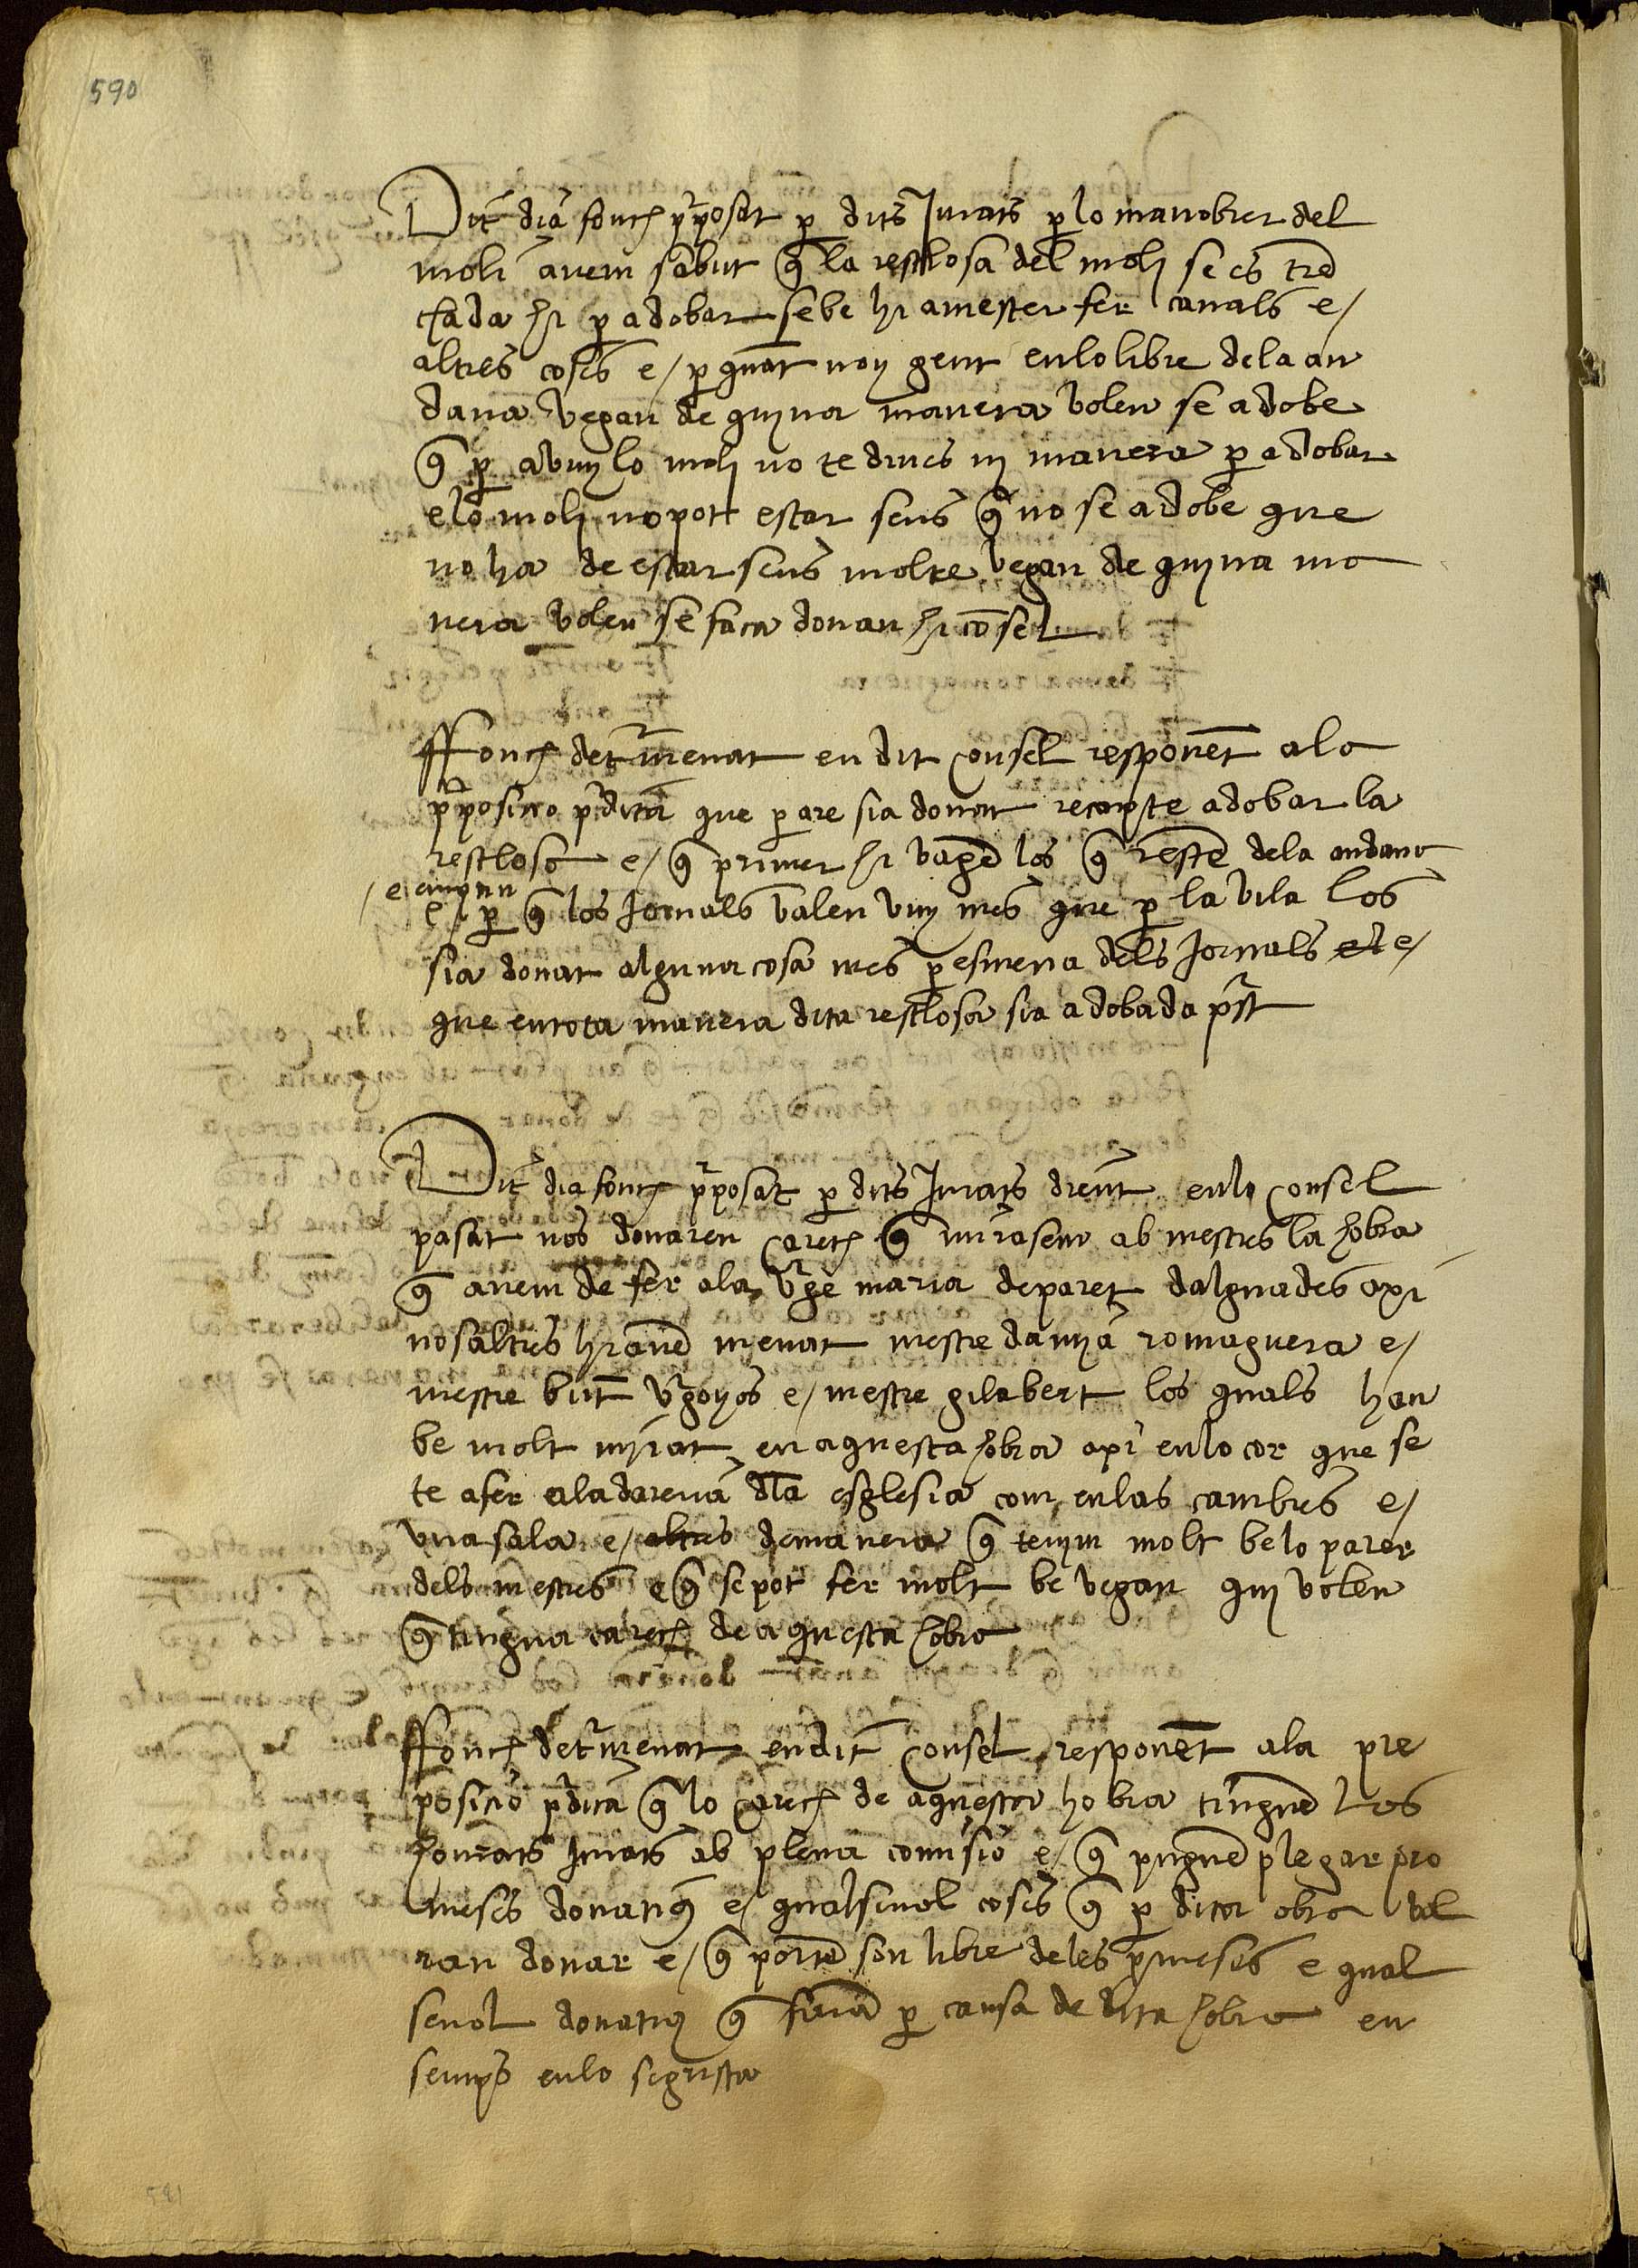 590
Dit dia fonch pposat p dits Jurats p lo manobrer del
moli avem sabut q la resclosa del moli se es tre
cada hi p adobar se be hi a mester fer canals e/
altres coses e/ p quat noy gent en lo libre de la an
dana vegan de quina manera volen se adobe
q p avuy lo moli no te dines ni manera p adobar
e lo moli no pot estar sens q no se adobe que
no ha de estar sens molre vegan de quina ma
nera volen se faca donan hi cosel
ffonch detmenat en dit consel responet ala
pposicio pdita que per are sia donat recapte adobar la
resclosa e/ q primer hi vage los q reste dela andana
e/ p q los Jornals valen vuy mes que p la vila los
sia donat alguna cosa mes p esmena dels Jornals et e/
que en tota manera dita resclosa sia adobada pst
Dit dia fonch pposat p dits Jurats dient en lo consel
pasat nos donaren carech q mirasem ab mestres la hobra
q avem de fer ala vge maria de paret dalguades axi
nosaltres hi ave menat mestre damia romaguera e/
mestre bnt vgoyos e/ mestre gilabert los quals han
be molt mirat en aquesta hobra axi en lo cor que se
te afer ala darena dla esglesia com en las cambres e/
una sala e/ altres de manera q tenim molt be lo parer
dels mestres e q se pot fer molt be vegan qui volen
q tingua carech de aquesta hobra
ffonch detmenat en dit consel responet ala pre
posicio pdita q lo carech de aquesta hobra tingue los
honrats Jurats ab plena comisio e/ q pugue plegar pro
meses donatius e/ qualsevol coses q p dita obra vol
ran donar e/ q porte son libre de les pmeses e qual
sevol donatiu q fara p causa de dita hobra en
semps en lo sigrista
591